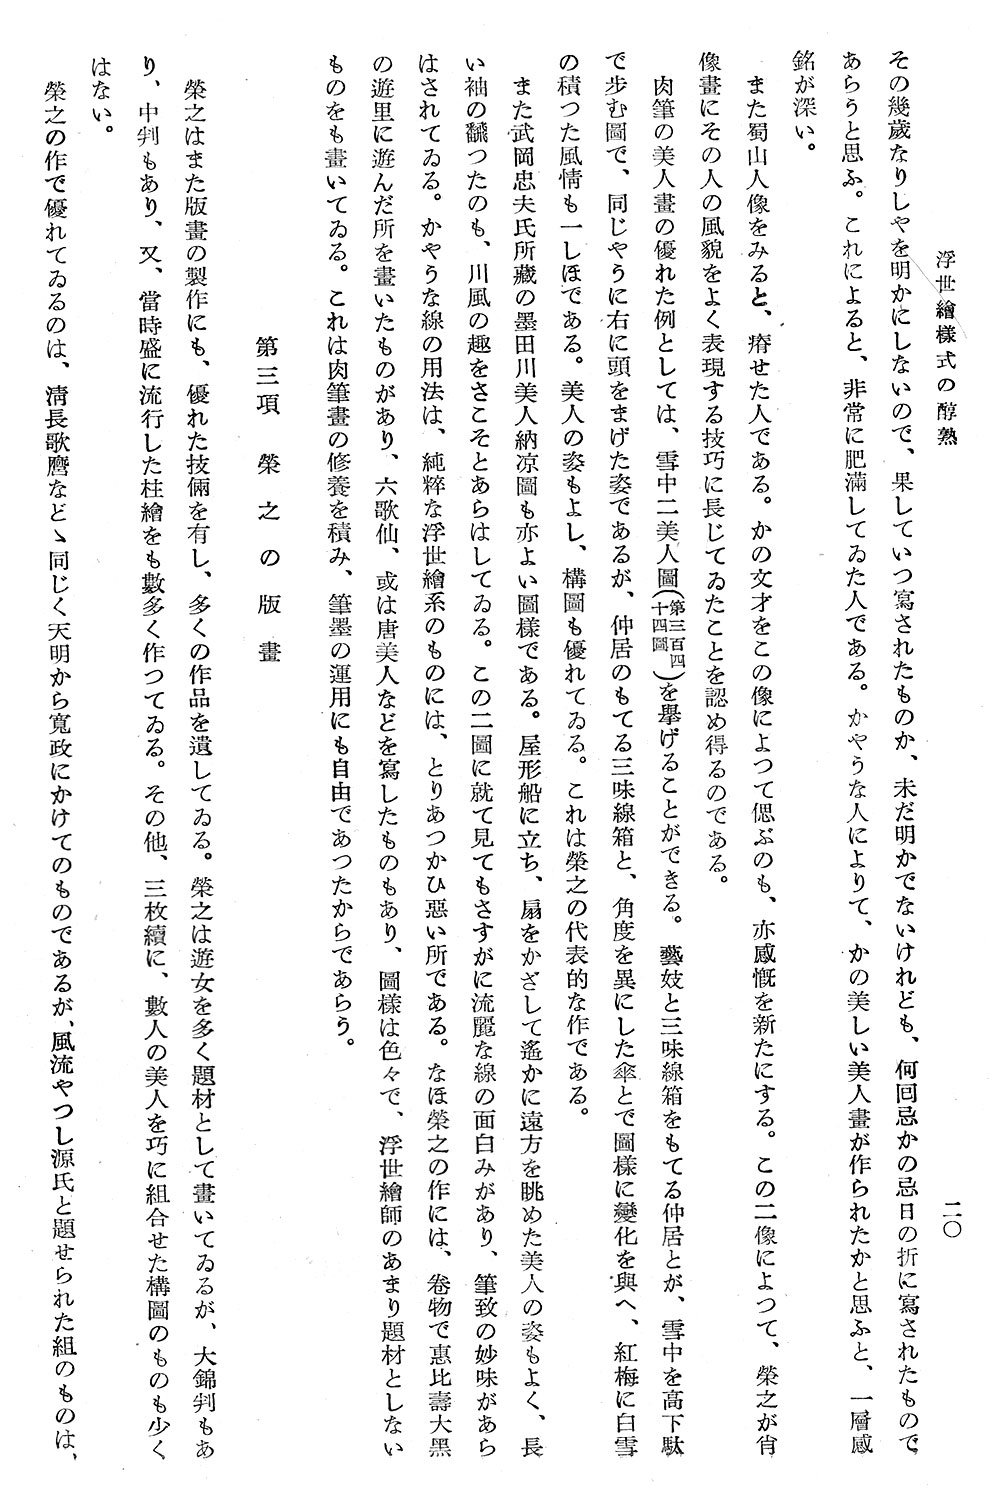 浮世繪樣式の醇熟
二〇
その幾歲なりしやを明かにしないので、果していつ寫されたものか、未だ明かでないけれども、何回忌かの忌日の折に寫されたもので
あらうと思ふ。これによると、非常に肥滿してゐた人である。かやうな人によりて、かの美しい美人畫が作られたかと思ふと、一層感
銘が深い。
また蜀山人像をみると、瘠せた人である。かの文才をこの像によつて偲ぶのも、亦感慨を新たにする。この二像によつて、榮之が肖
像畫にその人の風貌をよく表現する技巧に長じてゐたことを認め得るのである。
肉筆の美人畫の優れた例としては、雪中二美人圖(第三百四十四圖)を擧げることができる。藝妓と三味線箱をもてる仲居とが、雪中を高下駄
で步む圖で、同じやうに右に頭をまげた姿であるが、仲居のもてる三味線箱と、角度を異にした傘とで圖樣に變化を與へ、紅梅に白雪
の積つた風情も一しほである。美人の姿もよし、構圖も優れてゐる。これは榮之の代表的な作である。
また武岡忠夫氏所藏の墨田川美人納凉圖も亦よい圖樣である。屋形船に立ち、扇をかざして遙かに遠方を眺めた美人の姿もよく、長
い袖の飜つたのも、川風の趣をさこそとあらはしてゐる。この二圖に就て見てもさすがに流麗な線の面白みがあり、筆致の妙味があら
はされてゐる。かやうな線の用法は、純粹な浮世繪系のものには、とりあつかひ惡い所である。なほ榮之の作には、卷物で惠比壽大黑
の遊里に遊んだ所を畫いたものがあり、六歌仙、或は唐美人などを寫したものもあり、圖樣は色々で、浮世繪師のあまり題材としない
ものをも畫いてゐる。これは肉筆畫の修養を積み、筆墨の運用にも自由であつたからであらう。
第三項 榮之の版畫
榮之はまた版畫の製作にも、優れた技倆を有し、多くの作品を遺してゐる。榮之は遊女を多く題材として畫いてゐるが、大錦判もあ
り、中判もあり、又、當時盛に流行した柱繪をも數多く作つてゐる。その他、三枚續に、數人の美人を巧に組合せた構圖のものも少く
はない。
榮之の作で優れてゐるのは、淸長歌麿などゝ同じく天明から寬政にかけてのものであるが、風流やつし源氏と題せられた組のものは、